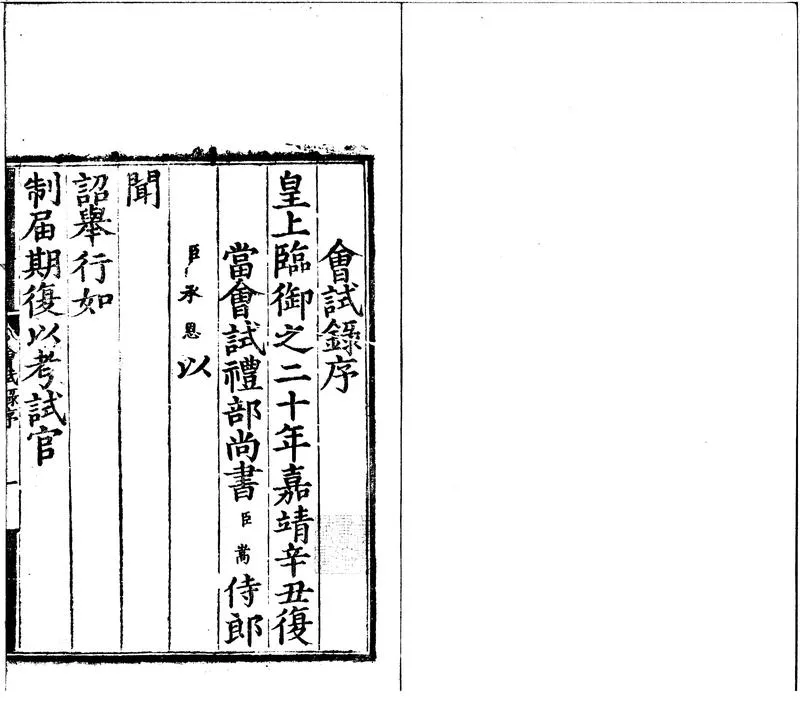 會試錄序
皇上臨御之二十年嘉靖辛丑復
當會試禮部尚書臣嵩侍郎
臣承恩以
聞
詔舉行如
制届期復以考試官
會試錄序
一